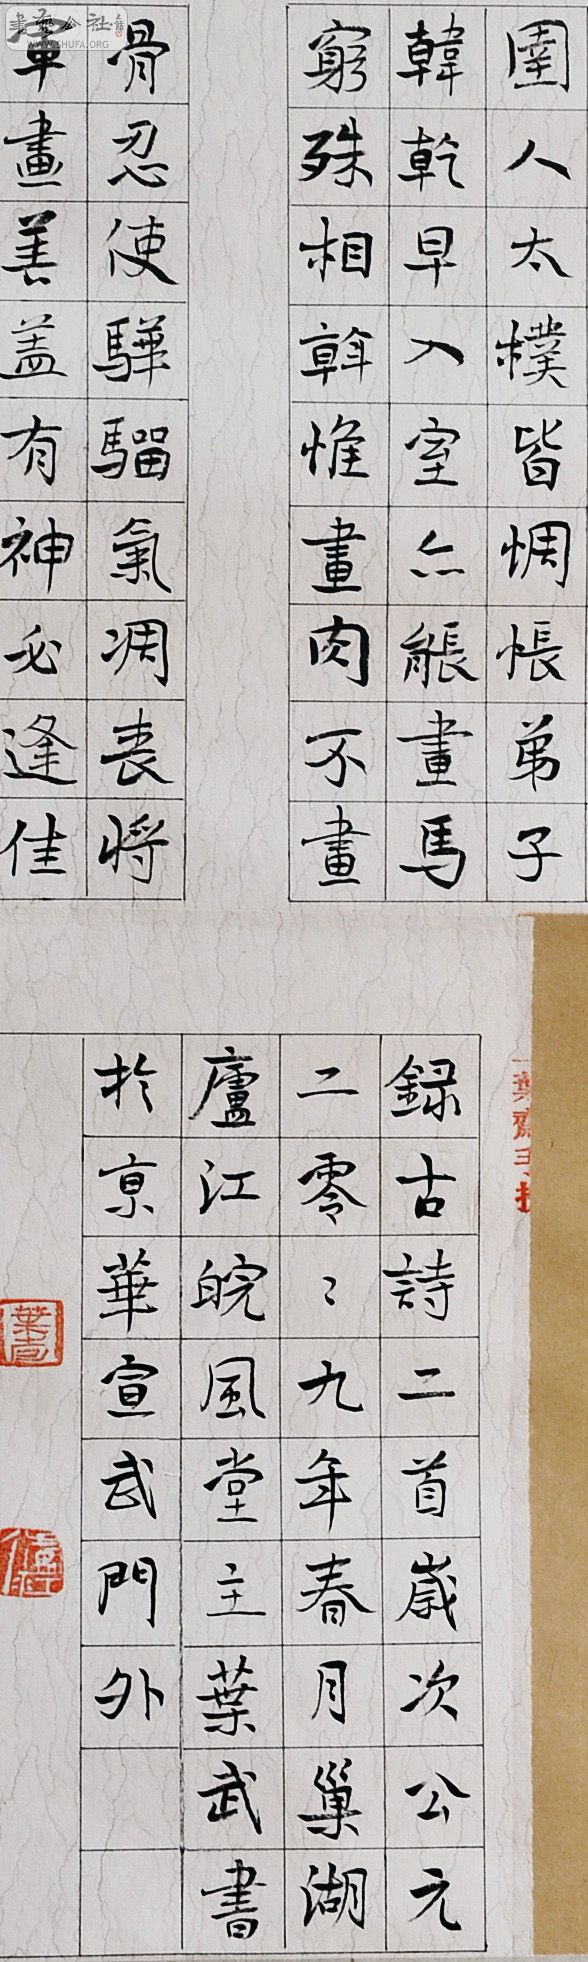 圉人太樸皆惆悵弟子
韓乾早入室亦能畫馬
窮殊相斡惟畫肉不畫
骨忍使驊騮氣凋喪將
軍畫善蓋有神必逢佳
錄古詩二首歲次公元
二零〻九年春月巢湖
廬江皖風堂主葉武書
於京華宣武門外
書藝公社
WWW.SHUFA.ORG